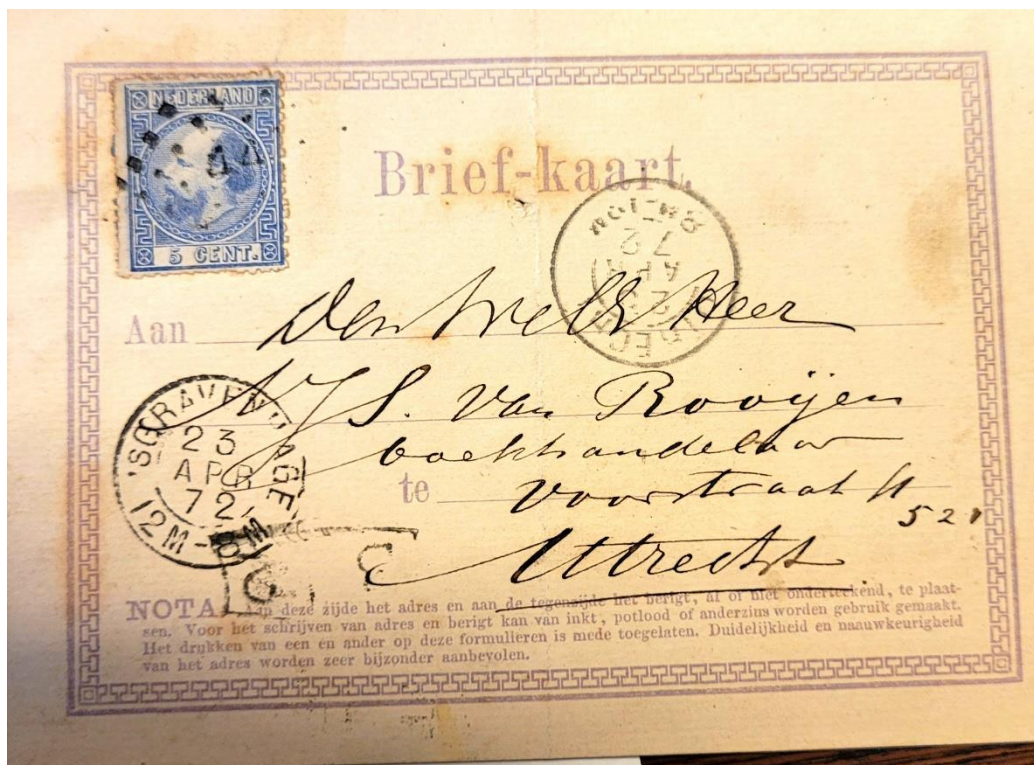 NEDERLAND
44
5 CENT.
Brief-kaart.
Aan Den WelE Heer
J. S. Van Rooijen
boekhandelaar
te Voorstraat H
521
Uttrecht
'SGRAVENHAGE
23
APR
72
12M-8M
APR
72
NOTA. Aan deze zijde het adres en aan de tegenzijde het berigt, al of niet onderteekend, te plaat-
sen. Voor het schrijven van adres en berigt kan van inkt, potlood of anderzins worden gebruik gemaakt.
Het drukken van een en ander op deze formulieren is mede toegelaten. Duidelijkheid en naauwkeurigheid
van het adres worden zeer bijzonder aanbevolen.